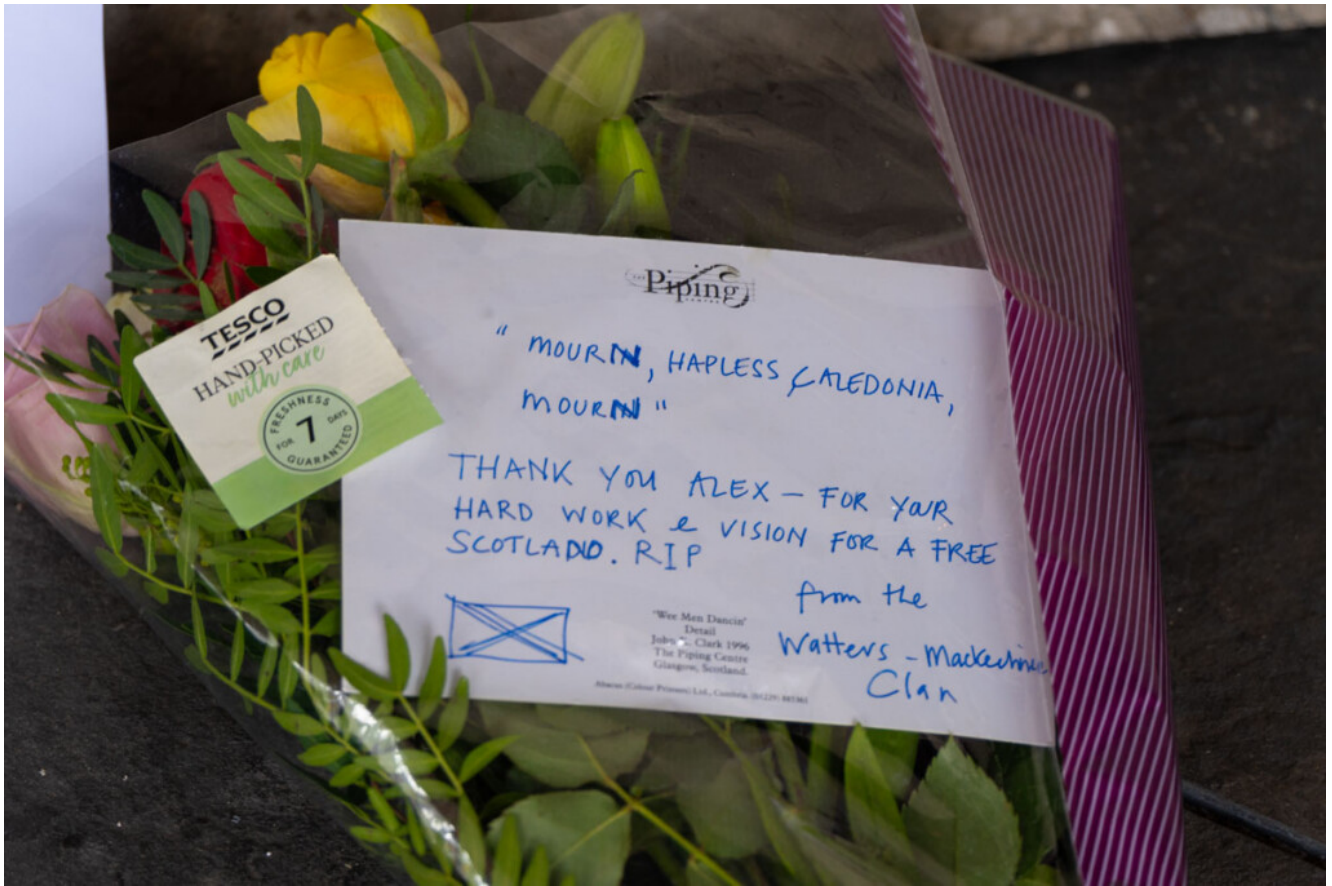 TESCO
HAND-PICKED
with care
FRESHNESS
FOR 7 DAYS
GUARANTEED
THE
Piping
CENTRE
" MOURN, HAPLESS CALEDONIA,
MOURN "
THANK YOU ALEX – FOR YOUR
HARD WORK & VISION FOR A FREE
SCOTLAND. RIP
from the
Watters - Mackechnie
Clan
'Wee Men Dancin'
Detail
John K. Clark 1996
The Piping Centre
Glasgow, Scotland.
Abacus (Colour Printers) Ltd., Cumbria.